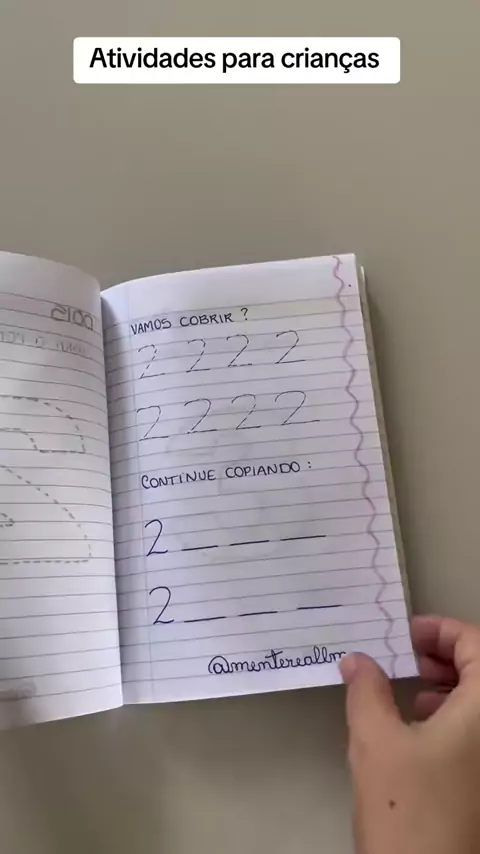 Atividades para crianças
DOIS
VAMOS COBRIR ?
2 2 2 2
2 2 2 2
CONTINUE COPIANDO :
2 _ _ _
2 _ _ _
@menterealbm